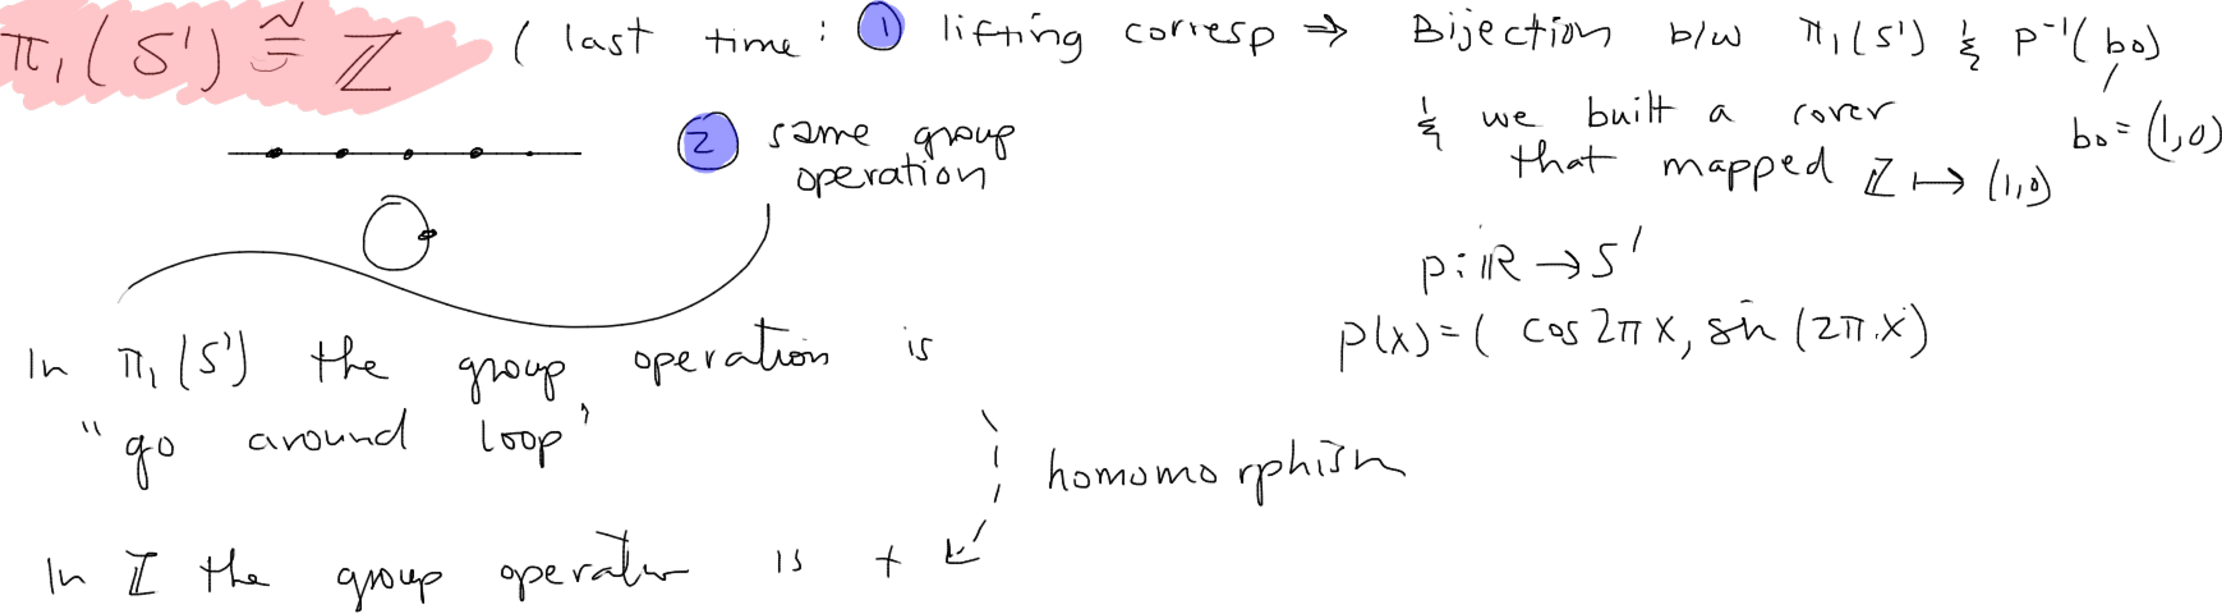 π₁(S¹) ≅ ℤ ( last time : ① lifting corresp ⇒ Bijection b/w π₁(S¹) & p⁻¹(b₀)
& we built a cover b₀ = (1,0)
that mapped ℤ ↦ (1,0)
② same group
operation
p : ℝ → S¹
p(x) = ( cos 2π x, sin (2π.x)
In π₁(S¹) the group operation is
"go around loop"
homomorphism
In ℤ the group operation is +